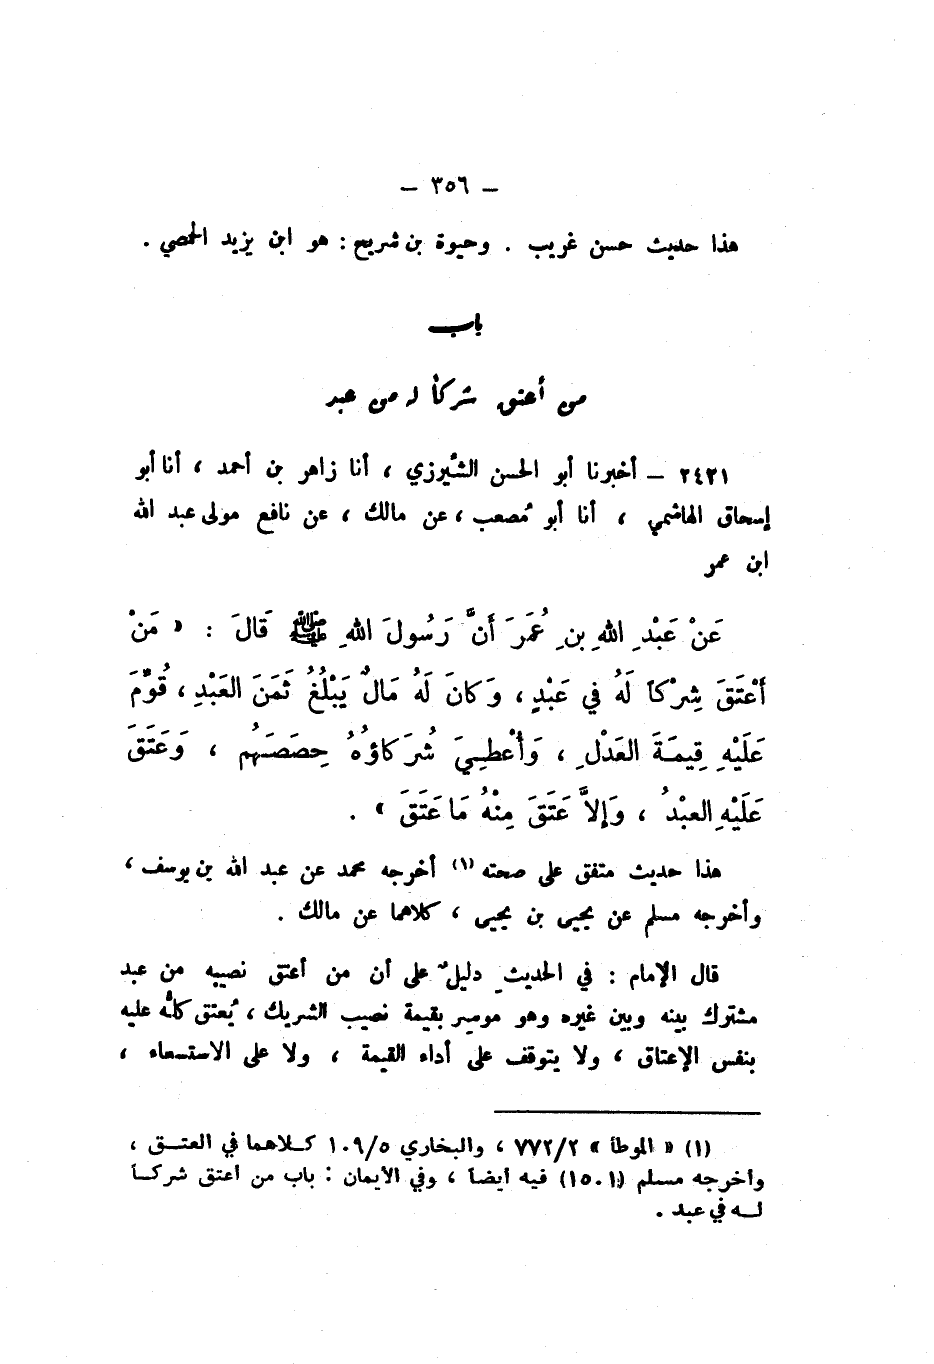 — ٣٥٦ —
هذا حديث حسن غريب . وحيوة بن شريح : هو ابن يزيد الحمصي .
باب
من أعتق شركاً له من عبد
٢٤٢١ — أخبرنا أبو الحسن الشَّيرزي ، أنا زاهر بن أحمد ، أنا أبو
إسحاق الهاشمي ، أنا أبو مُصعب ، عن مالك ، عن نافع مولى عبد الله
ابن عمر
عَنْ عَبْدِ اللهِ بنِ عُمَرَ أَنَّ رَسُولَ اللهِ ﷺ قَالَ : « مَنْ
أَعْتَقَ شِرْكاً لَهُ في عَبْدٍ ، وَكَانَ لَهُ مَالٌ يَبْلُغُ ثَمَنَ العَبْدِ ، قُوِّمَ
عَلَيْهِ قِيمَةَ العَدْلِ ، وَأُعْطِيَ شُرَكاؤُهُ حِصَصَهُم ، وَعَتَقَ
عَلَيْهِ العبْدُ ، وَإلاَّ عَتَقَ مِنْهُ مَا عَتَقَ » .
هذا حديث متفق على صحته (١) أخرجه محمد عن عبد الله بن يوسف ،
وأخرجه مسلم عن يحيى بن يحيى ، كلاهما عن مالك .
قال الإمام : في الحديث دليلٌ على أن من أعتق نصيبه من عبد
مشترك بينه وبين غيره وهو موسر بقيمة نصيب الشريك ، يُعتق كلُّه عليه
بنفس الإعتاق ، ولا يتوقف على أداء القيمة ، ولا على الاستسعاء ،
(١) « الموطأ » ٧٧٢/٢ ، والبخاري ١٠٩/٥ كلاهما في العتق ،
وأخرجه مسلم (١٥٠١) فيه أيضاً ، وفي الأيمان : باب من أعتق شركاً
له في عبد .